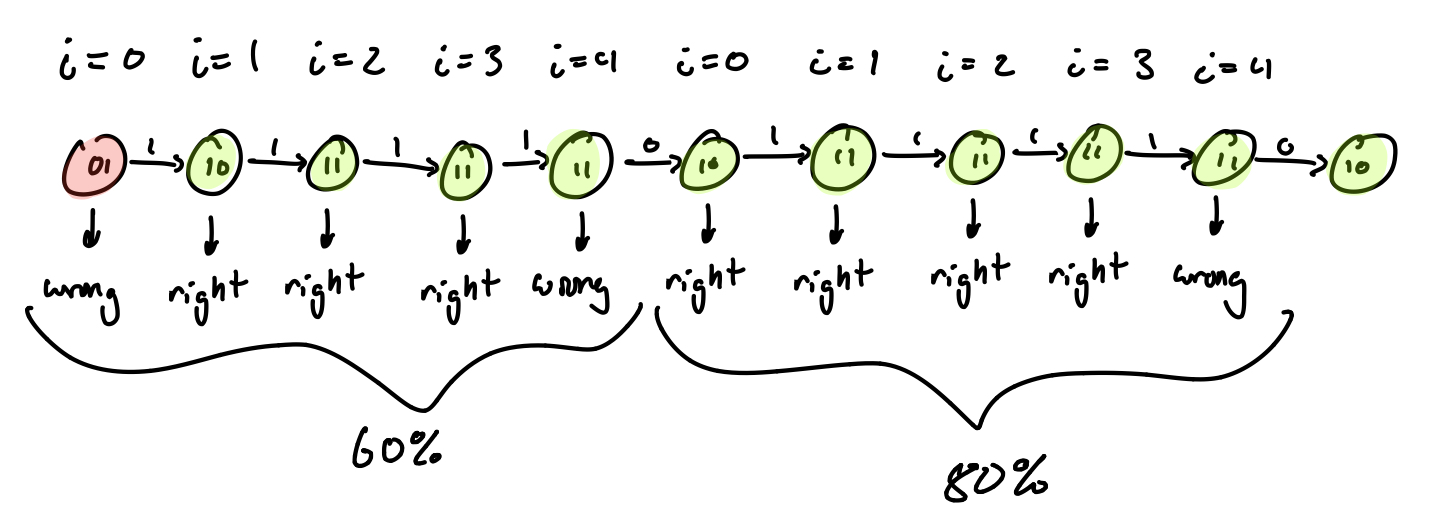 i=0 i=1 i=2 i=3 i=4 i=0 i=1 i=2 i=3 i=4
1 1 1 1 0 1 1 1 1 0
01 10 11 11 11 10 11 11 11 11 10
wrong right right right wrong right right right right wrong
60% 80%